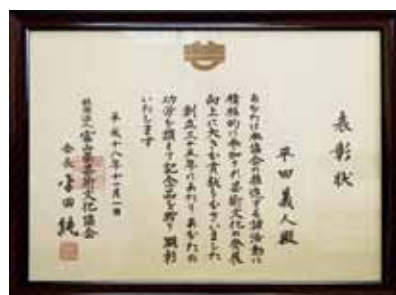 表彰状
平田義人殿
あなたは本協会の推進する諸活動に
積極的に参加され芸術文化の発展
向上に大きな貢献をなさいました
創立三十五年にあたりあなたの
功労を讃えて記念品を贈り顕彰
いたします
平成十八年十一月一日
社団法人富山県芸術文化協会
会長 田 純